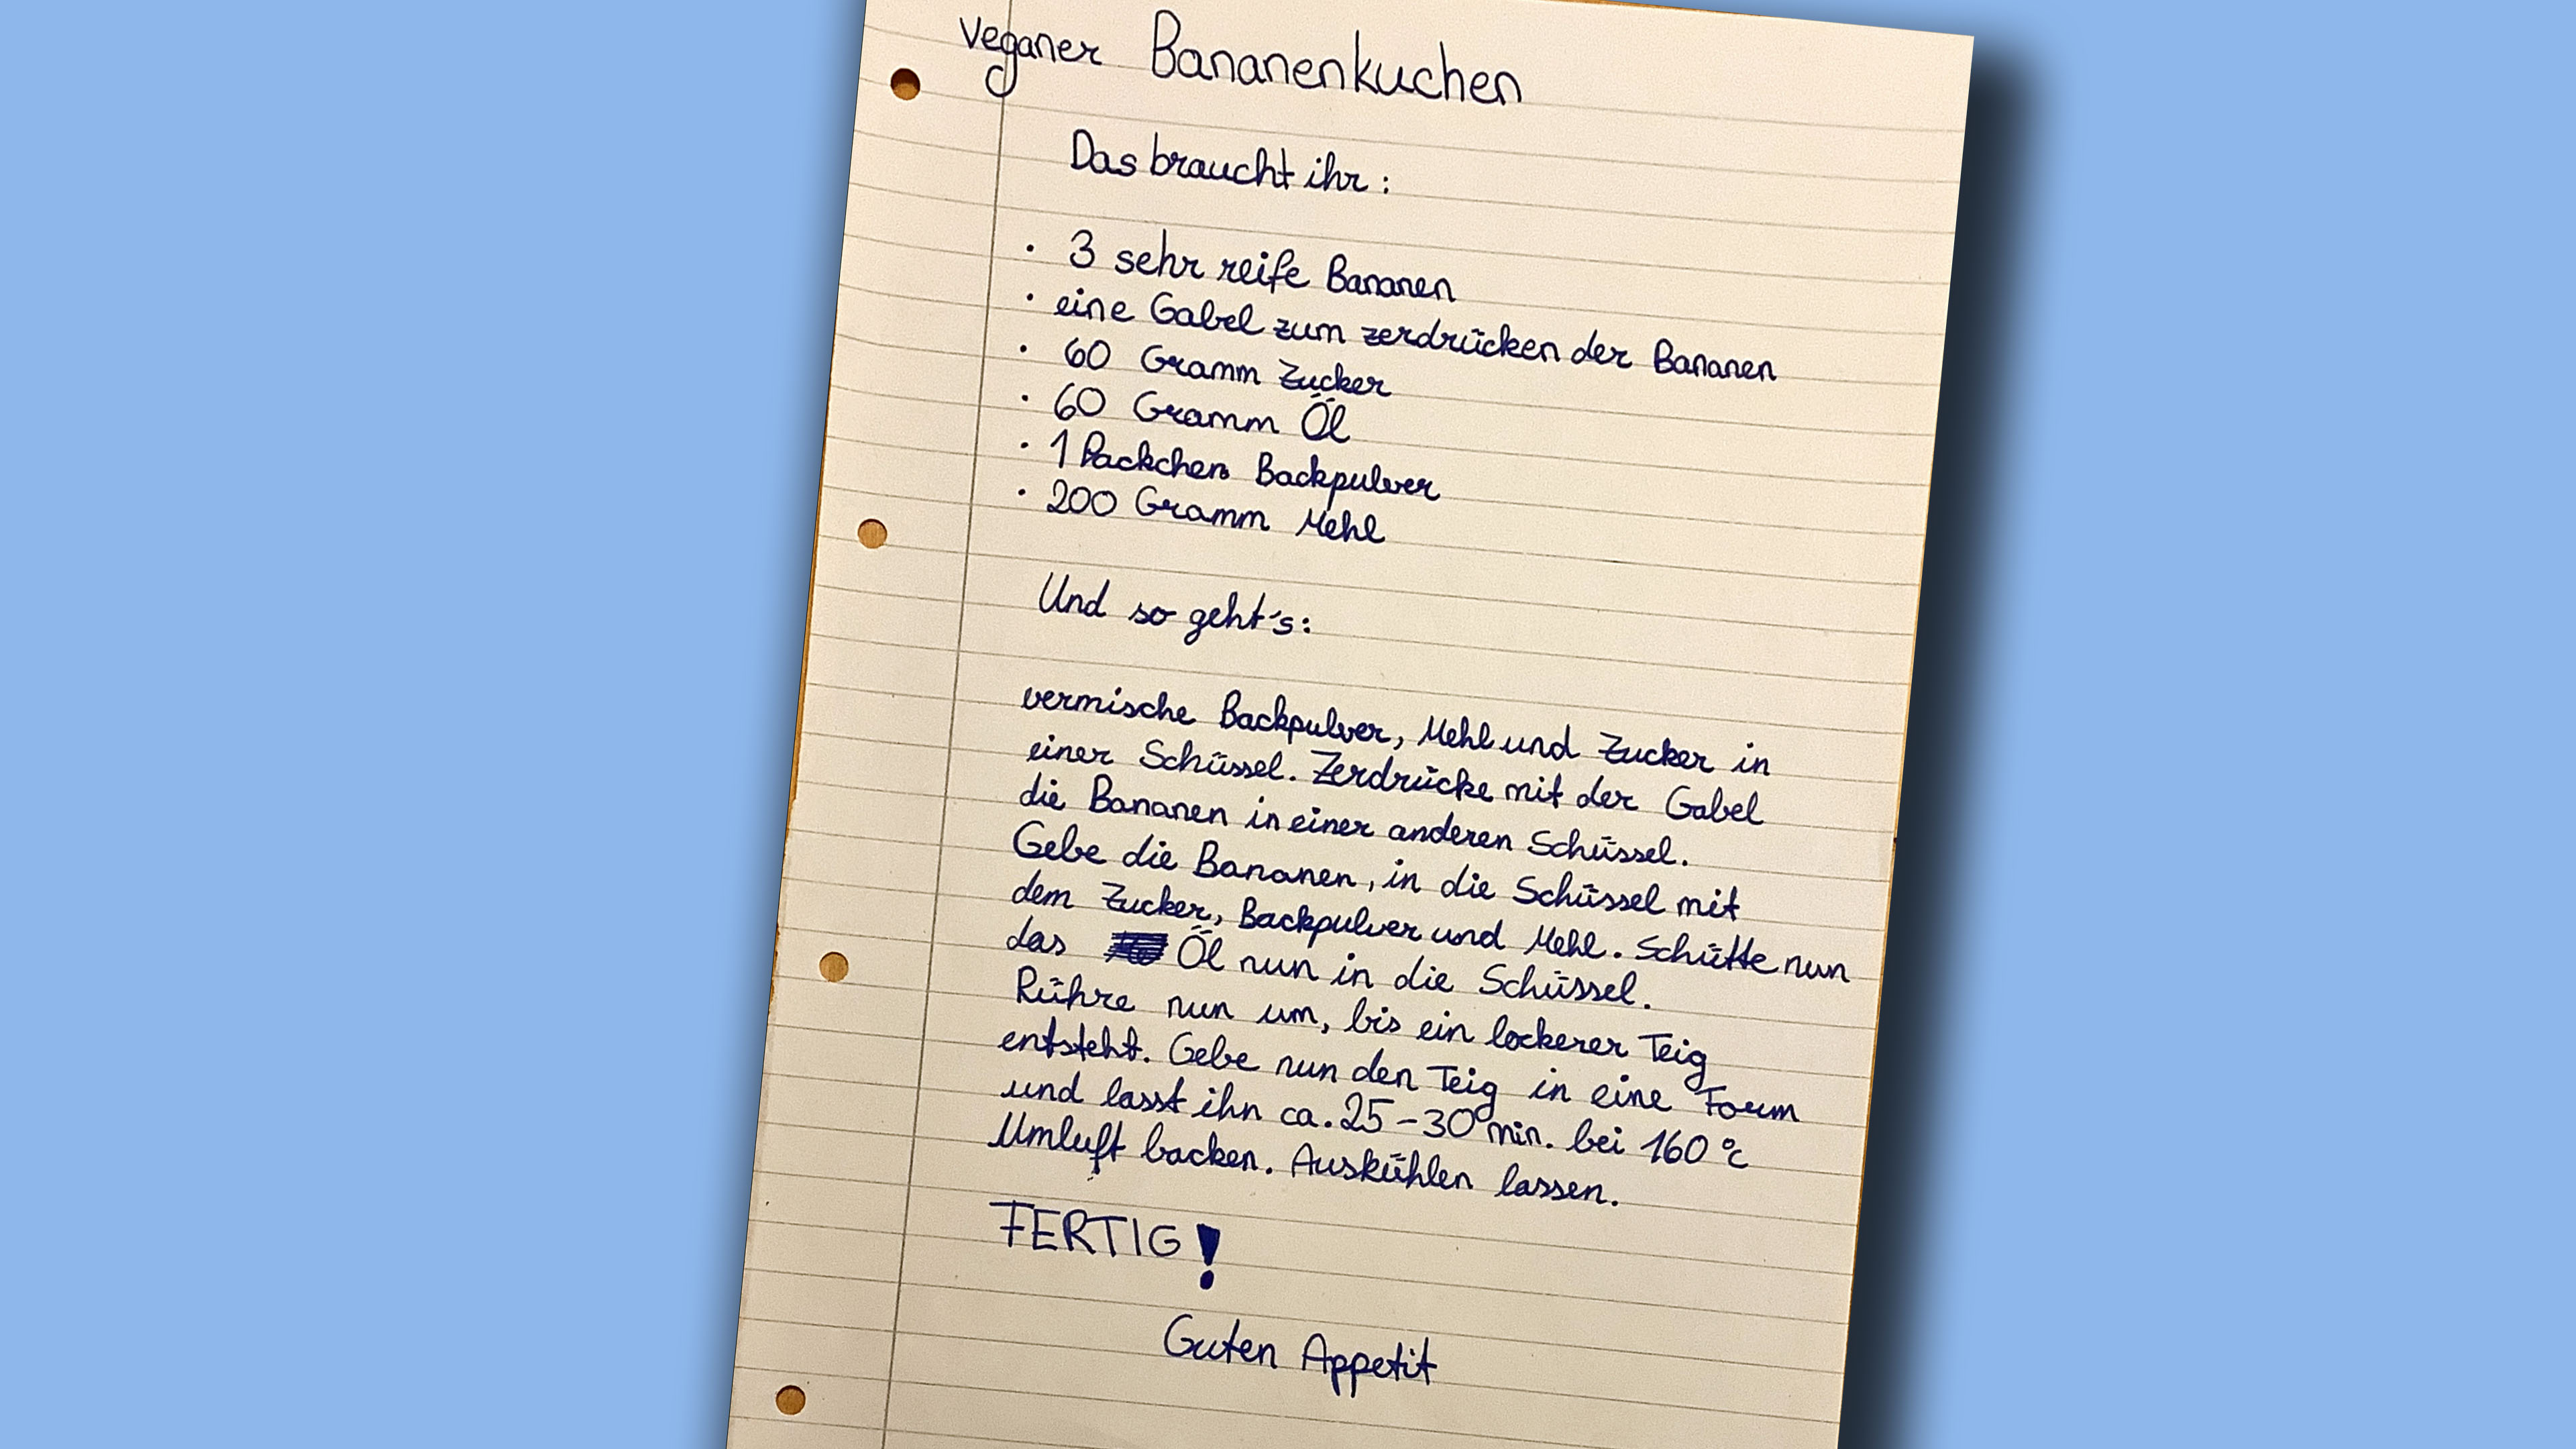 veganer Bananenkuchen
Das braucht ihr:
· 3 sehr reife Bananen
· eine Gabel zum zerdrücken der Bananen
· 60 Gramm Zucker
· 60 Gramm Öl
· 1 Packchen Backpulver
· 200 Gramm Mehl
Und so geht's:
vermische Backpulver, Mehl und Zucker in
einer Schüssel. Zerdrücke mit der Gabel
die Bananen in einer anderen Schüssel.
Gebe die Bananen, in die Schüssel mit
dem Zucker, Backpulver und Mehl. Schütte nun
das Öl nun in die Schüssel.
Rühre nun um, bis ein lockerer Teig
entsteht. Gebe nun den Teig in eine Form
und lasst ihn ca. 25-30 min. bei 160 °C
Umluft backen. Auskühlen lassen.
FERTIG!
Guten Appetit